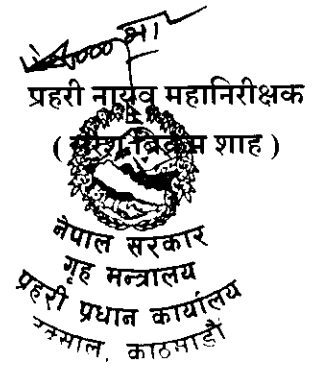 प्रहरी नायव महानिरीक्षक
( सुरेश बिक्रम शाह )
नेपाल सरकार
गृह मन्त्रालय
प्रहरी प्रधान कार्यालय
नक्साल, काठमाडौं